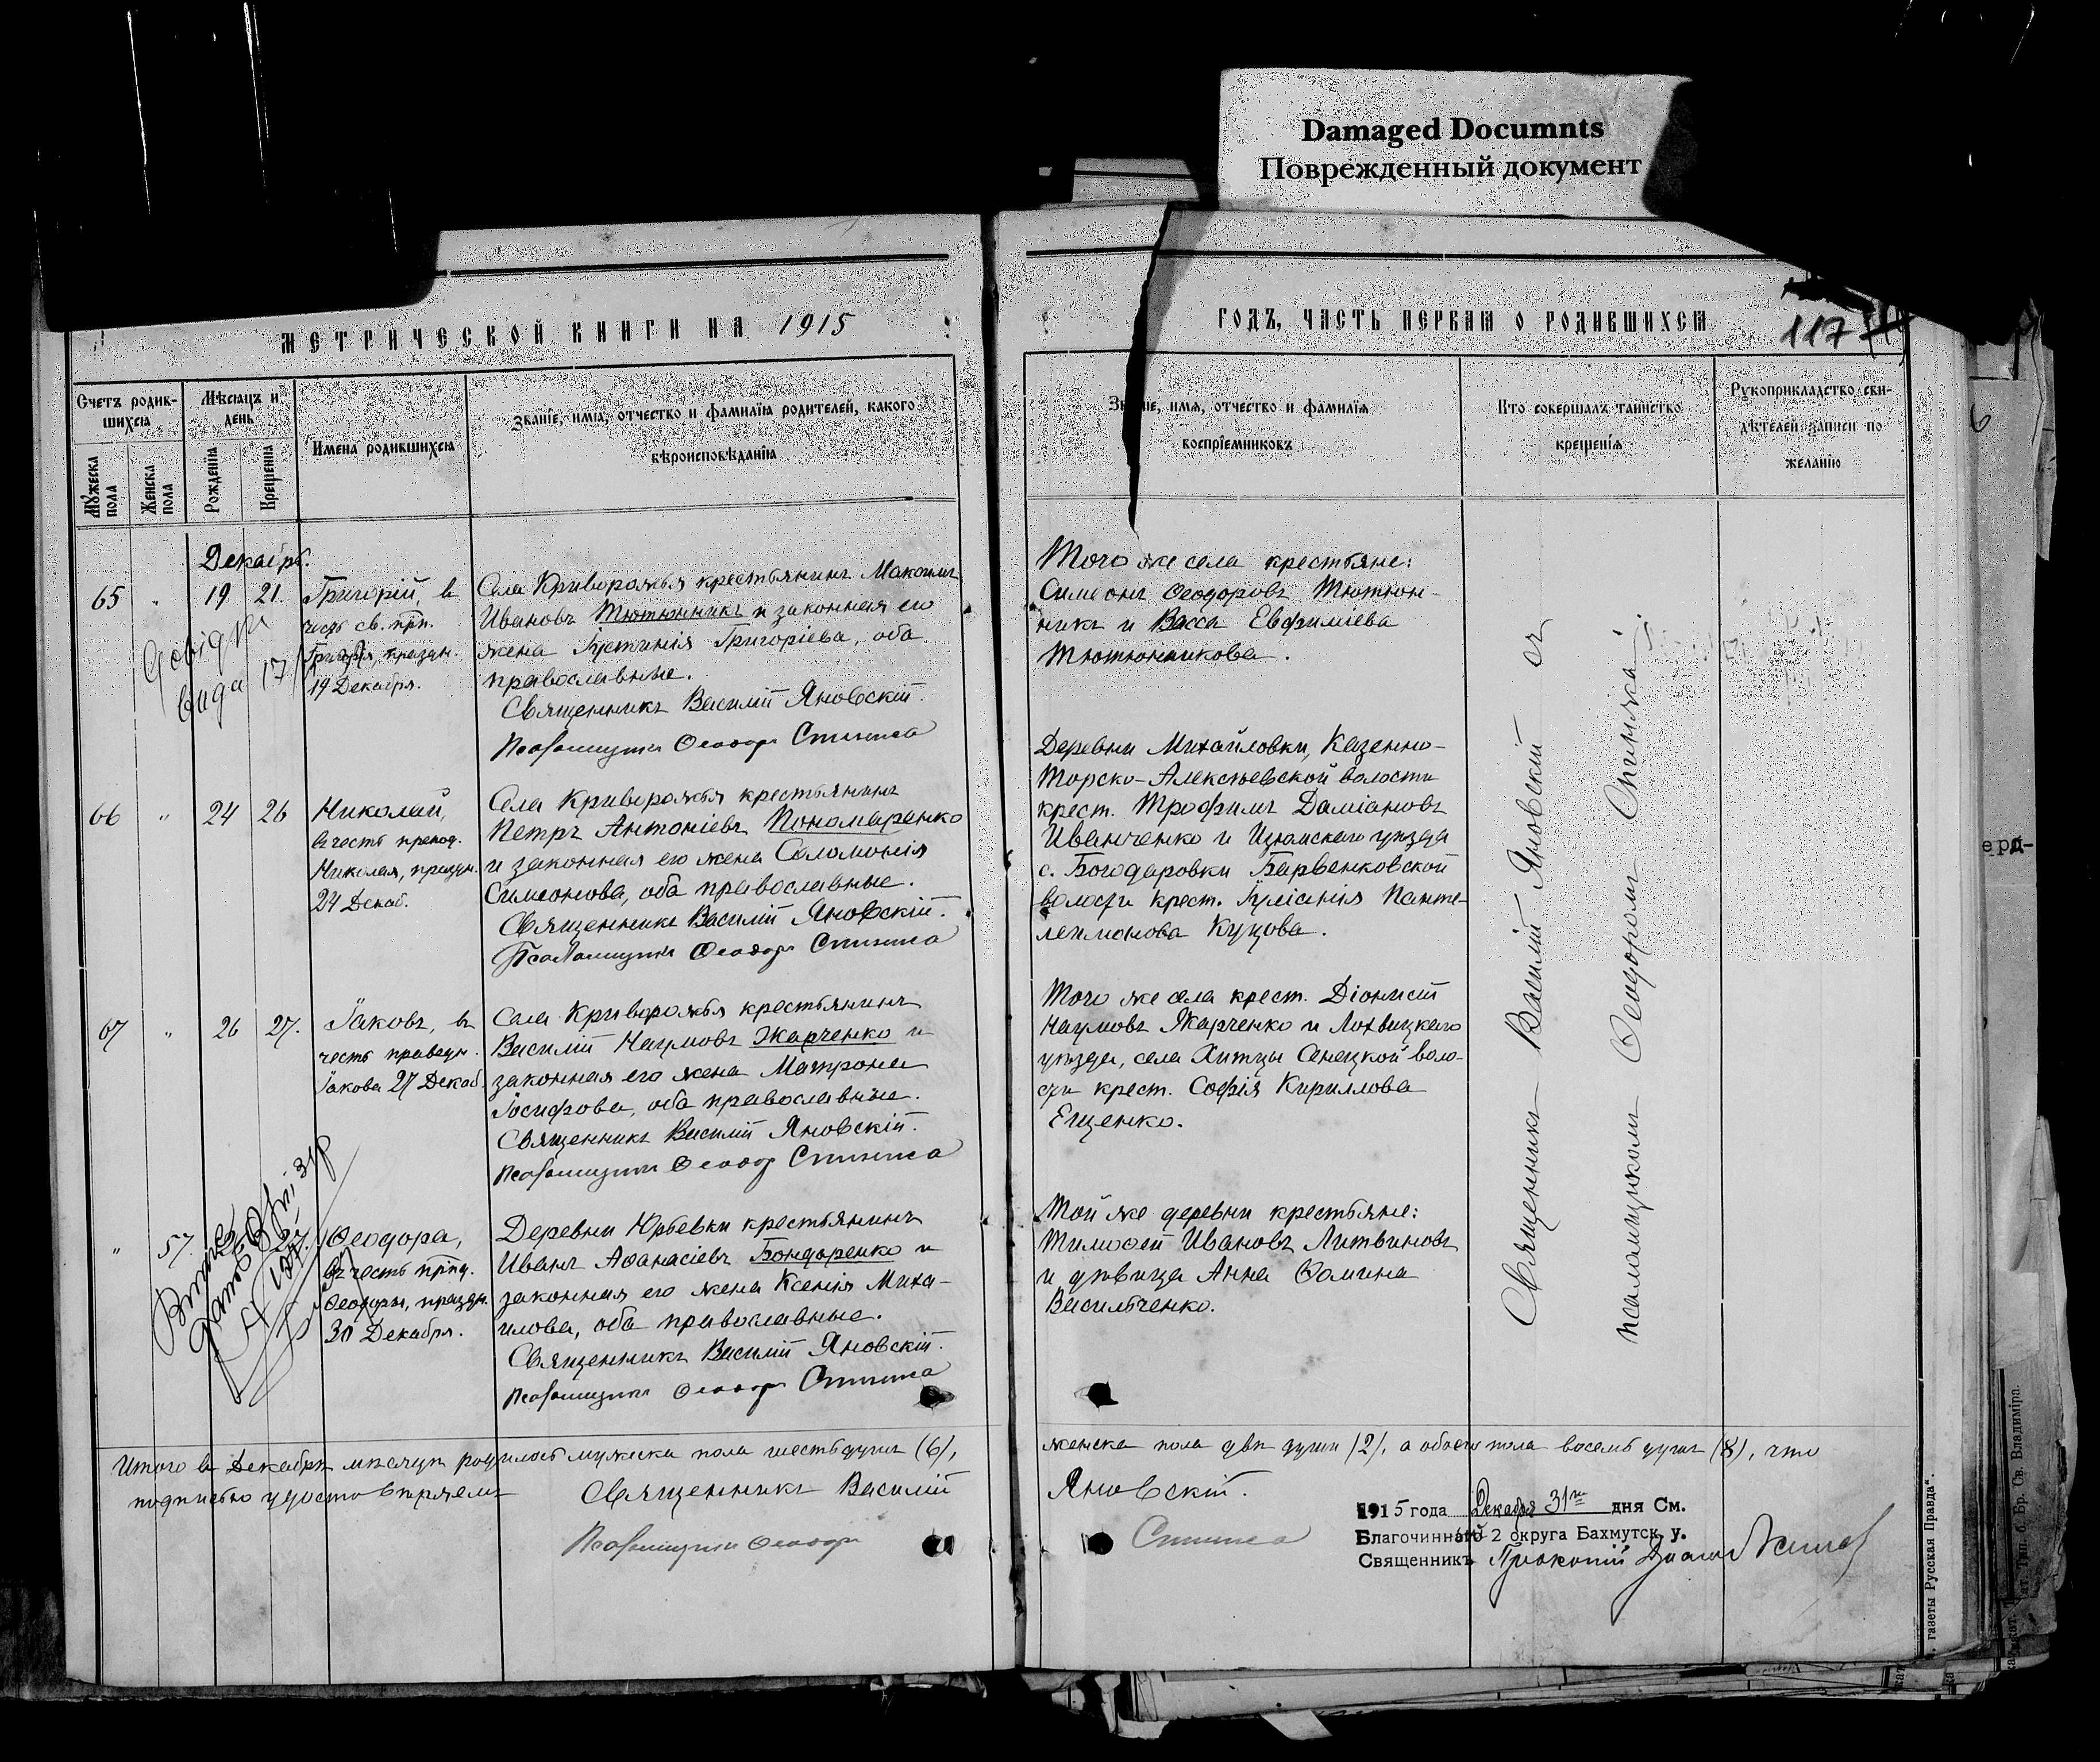 Damaged Documnts
Поврежденный документ
Метрической книги на 1915
годъ, часть первая о родившихся
117
Счетъ родив-
шихся
Мѣсяцъ и
день
Имена родившихся
Званіе, имя, отчество и фамилія родителей, какого
вѣроисповѣданія
Мужеска
пола
Женска
пола
Рожденія
Крещенія
Званіе, имя, отчество и фамилія
воспріемниковъ
Кто совершалъ таинство
крещенія
Рукоприкладство сви-
дѣтелей записи по
желанію
Декабрь.
65 " 19 21.
Григорій, въ
честь св. прп.
Григорія, праздн.
19 Декабря.
Села Криворожья крестьянинъ Максимъ
Ивановъ Тютюнникъ и законная его
жена Іустинія Григоріева, оба
православные.
Священникъ Василій Яновскій.
Псаломщикъ Ѳеодоръ Спинка
Того же села крестьяне:
Симеонъ Ѳеодоровъ Тютюн-
никъ и Васса Евфиміева
Тютюнникова.
66 " 24 26
Николай,
въ честь препод.
Николая, праздн.
24 Декаб.
Села Криворожья крестьянинъ
Петръ Антоніевъ Пономаренко
и законная его жена Соломонія
Симеонова, оба православные.
Священникъ Василій Яновскій.
Псаломщикъ Ѳеодоръ Спинка
Деревни Михайловки, Казенно-
Торско-Алексѣевской волости
крест. Трофимъ Даміановъ
Иванченко и Изюмскаго уѣзда
с. Богодаровки Барвенковской
волости крест. Іуліанія Панте-
леимонова Куцова.
67 " 26 27.
Іаковъ, въ
честь праведн.
Іакова 27 Декаб.
Села Криворожья крестьянинъ
Василій Наумовъ Жарченко и
законная его жена Матрона
Іосифова, оба православные.
Священникъ Василій Яновскій.
Псаломщикъ Ѳеодоръ Спинка
Того же села крест. Діонисій
Наумовъ Жарченко и Лохвицкаго
уѣзда, села Хитцы Сенецкой воло-
сти крест. Софія Кириллова
Ещенко.
" 57. 27.
Ѳеодора,
въ честь прпд.
Ѳеодоры, праздн.
30 Декабря.
Деревни Юрьевки крестьянинъ
Иванъ Аѳанасіевъ Бондаренко и
законная его жена Ксенія Миха-
илова, оба православные.
Священникъ Василій Яновскій.
Псаломщикъ Ѳеодоръ Спинка
Той же деревни крестьяне:
Тимоѳей Ивановъ Литвиновъ
и дѣвица Анна Ѳомина
Васильченко.
Священникъ Василій Яновскій съ
псаломщикомъ Ѳеодоромъ Спинка.
Итого въ Декабрѣ мѣсяцѣ родилось мужеска пола шесть душъ (6),
женска пола двѣ души (2), а обоего пола восемь душъ (8), что
подписью удостовѣряемъ
Священникъ Василій
Яновскій.
Псаломщикъ Ѳеодоръ
Спинка
1915 года Декабря 31го дня См.
Благочинный 2 округа Бахмутск. у.
Священникъ Прокопій
газеты Русская Правда".
Бр. Св. Владиміра.